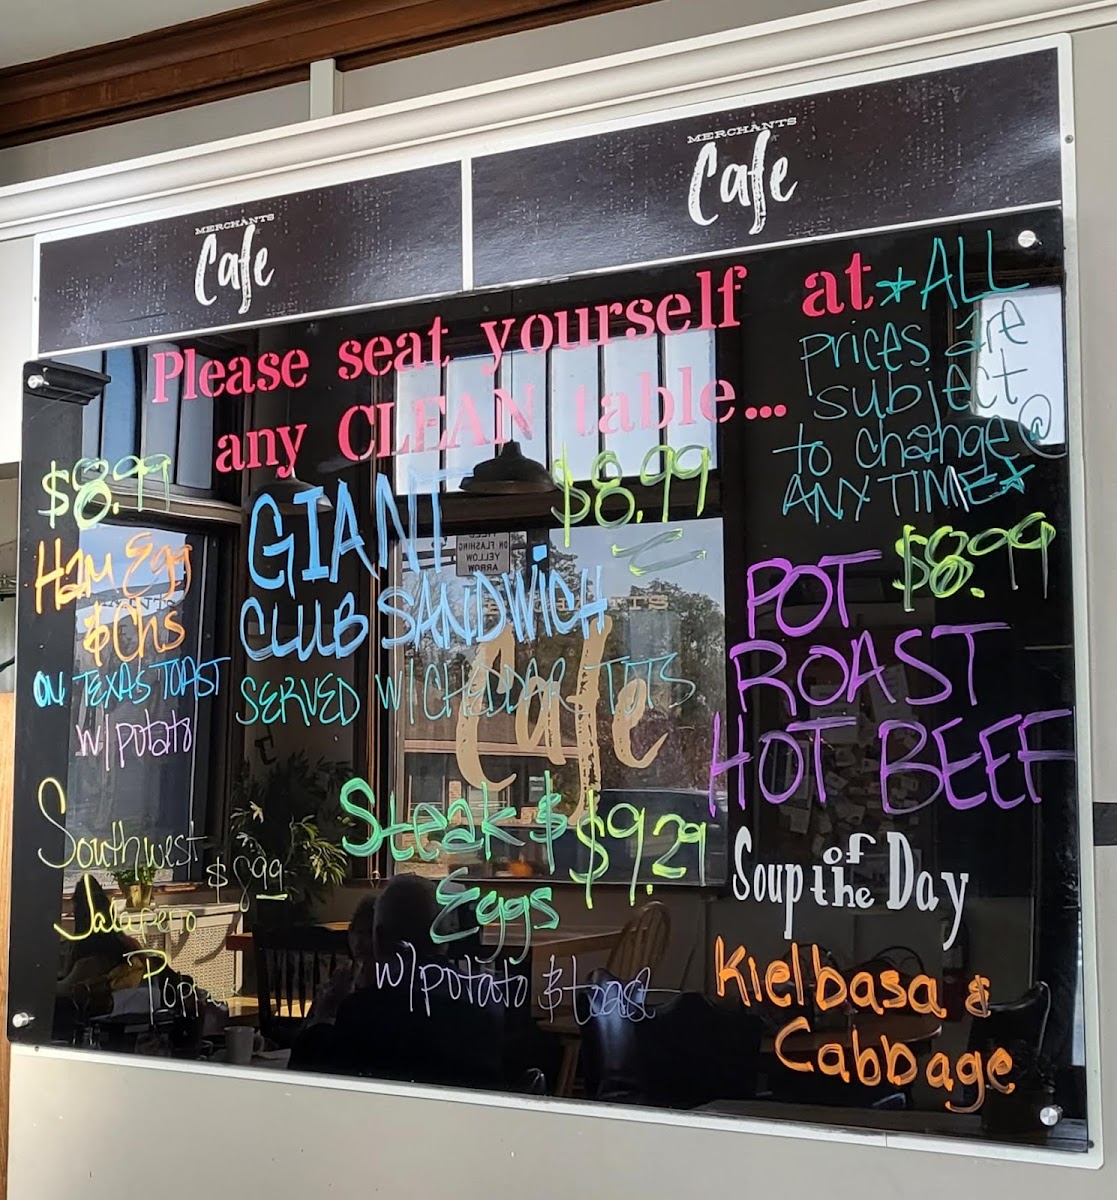 MERCHANTS
Cafe
MERCHANTS
Cafe
Please seat yourself at
any CLEAN table...
*ALL
prices are
subject
to change @
ANYTIME*
$8.99
Ham Egg
& Chs
ON TEXAS TOAST
w/ potato
GIANT $8.99
CLUB SANDWICH
SERVED W/ CHEDDAR TOTS
$8.99
POT
ROAST
HOT BEEF
Southwest
Jalapeno $8.99
Steak & $9.29
Eggs
w/ potato & toast
Soup of the Day
Kielbasa &
Cabbage
ON FLASHING
YELLOW
ARROW
Cafe